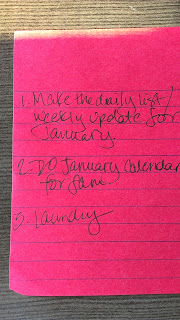 1. Make the daily list/
weekly update for
January.
2. DO January Calendar
for
3. Laundry